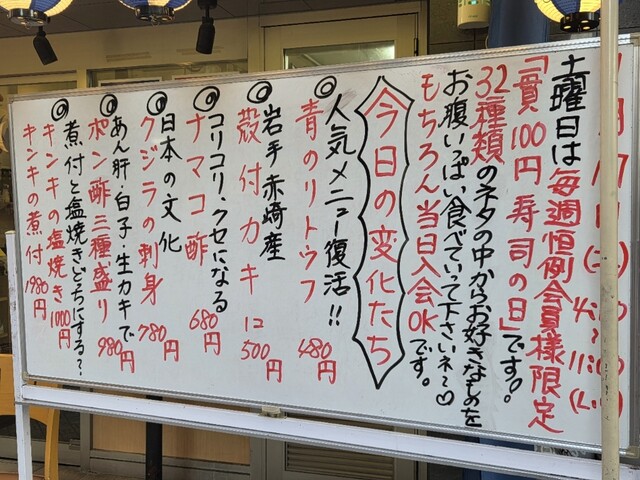 土曜日は毎週恒例会員様限定
「一貫100円寿司の日」です。
32種類のネタの中からお好きなものを
お腹いっぱい食べていって下さいネ〜♡
もちろん当日入会OKです。
今日の変化たち
人気メニュー復活!!
青のりトウフ 480円
岩手赤崎産
殻付カキ 1コ 500円
コリコリ、クセになる
ナマコ酢 680円
日本の文化
クジラの刺身 780円
あん肝・白子・生カキで
ポン酢三種盛り 980円
煮付と塩焼きどっちにする?
キンキの塩焼き 1000円
キンキの煮付 1980円